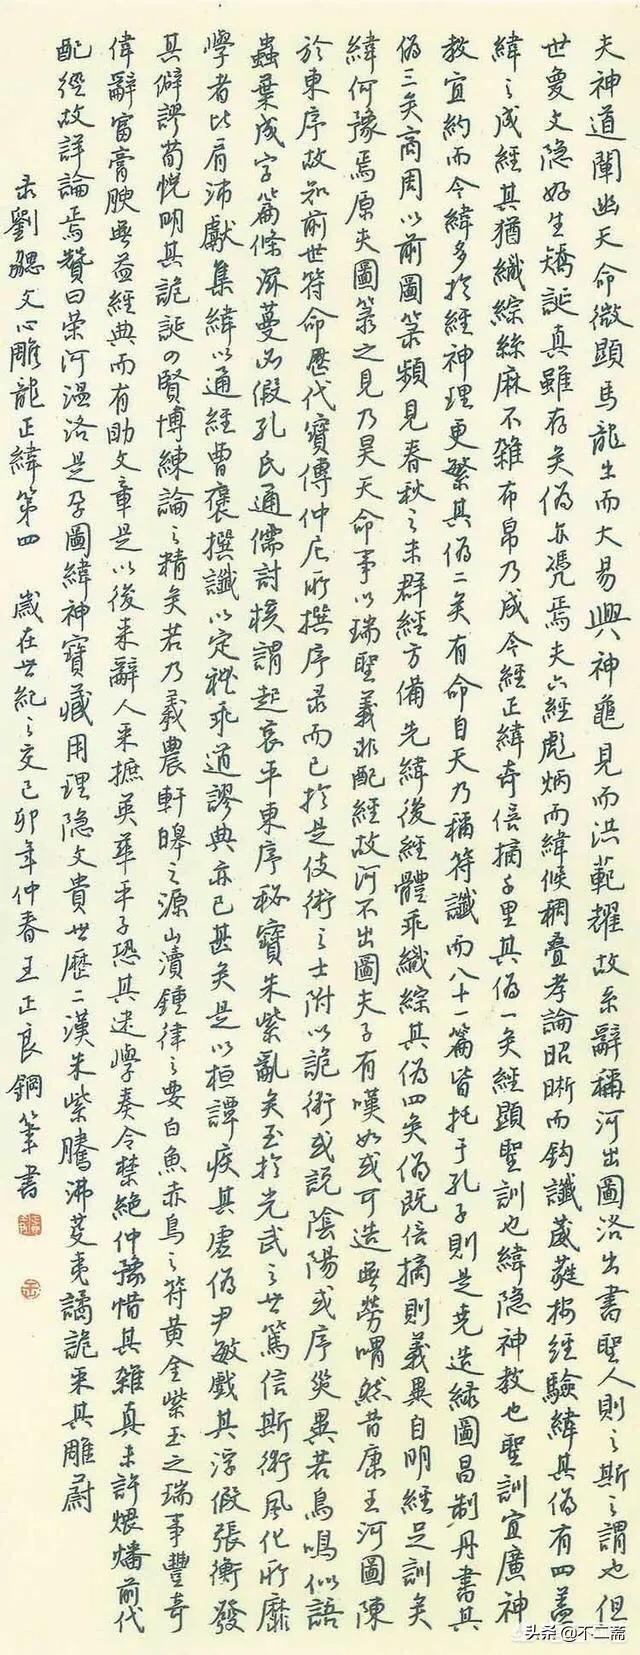 夫神道闡幽天命微顯馬龍出而大易興神龜見而洪範耀故系辭稱河出圖洛出書聖人則之斯之謂也但
世夐文隐好生矯誕真雖存矣偽亦凭焉夫六經彪炳而緯候稠叠孝論昭晰而鈎讖葳蕤按經驗緯其偽有四蓋
緯之成經其猶織綜絲麻不雜布帛乃成今經正緯奇倍摘千里其偽一矣經顯聖訓也緯隐神教也聖訓宜廣神
教宜約而今緯多於經神理更繁其偽二矣有命自天乃稱符讖而八十一篇皆托于孔子則是堯造緑圖昌制丹書其
偽三矣商周以前圖箓頻見春秋之末群經方備先緯後經體乖織綜其偽四矣偽既倍摘則義異自明經足訓矣
緯何豫焉原夫圖箓之見乃昊天命事以瑞聖義非配經故河不出圖夫子有嘆如或可造無勞喟然昔康王河圖陳
於東序故知前世符命歷代寶傳仲尼所撰序录而已於是伎術之士附以詭術或説陰陽或序災異若鳥鳴似語
蟲葉成字篇條滋蔓必假孔氏通儒討核謂起哀平東序秘寶朱紫亂矣至於光武之世篤信斯術風化所靡
學者比肩沛獻集緯以通經曹褒撰讖以定禮乖道謬典亦已甚矣是以桓譚疾其虚偽尹敏戲其浮假張衡發
其僻謬荀悦明其詭誕四賢博練論之精矣若乃羲農軒皞之源山瀆鍾律之要白魚赤烏之符黄金紫玉之瑞事豐奇
偉辭富膏腴無益經典而有助文章是以後来辭人采摭英華平子恐其迷學奏令禁絶仲豫惜其雜真未許煨燔前代
配經故詳論焉贊曰榮河温洛是孕圖緯神寶藏用理隐文貴世歷二漢朱紫騰沸芟夷譎詭采其雕蔚
录劉勰文心雕龍正緯第四 歲在世紀之交己卯年仲春王正良鋼筆書
头条@不二斋